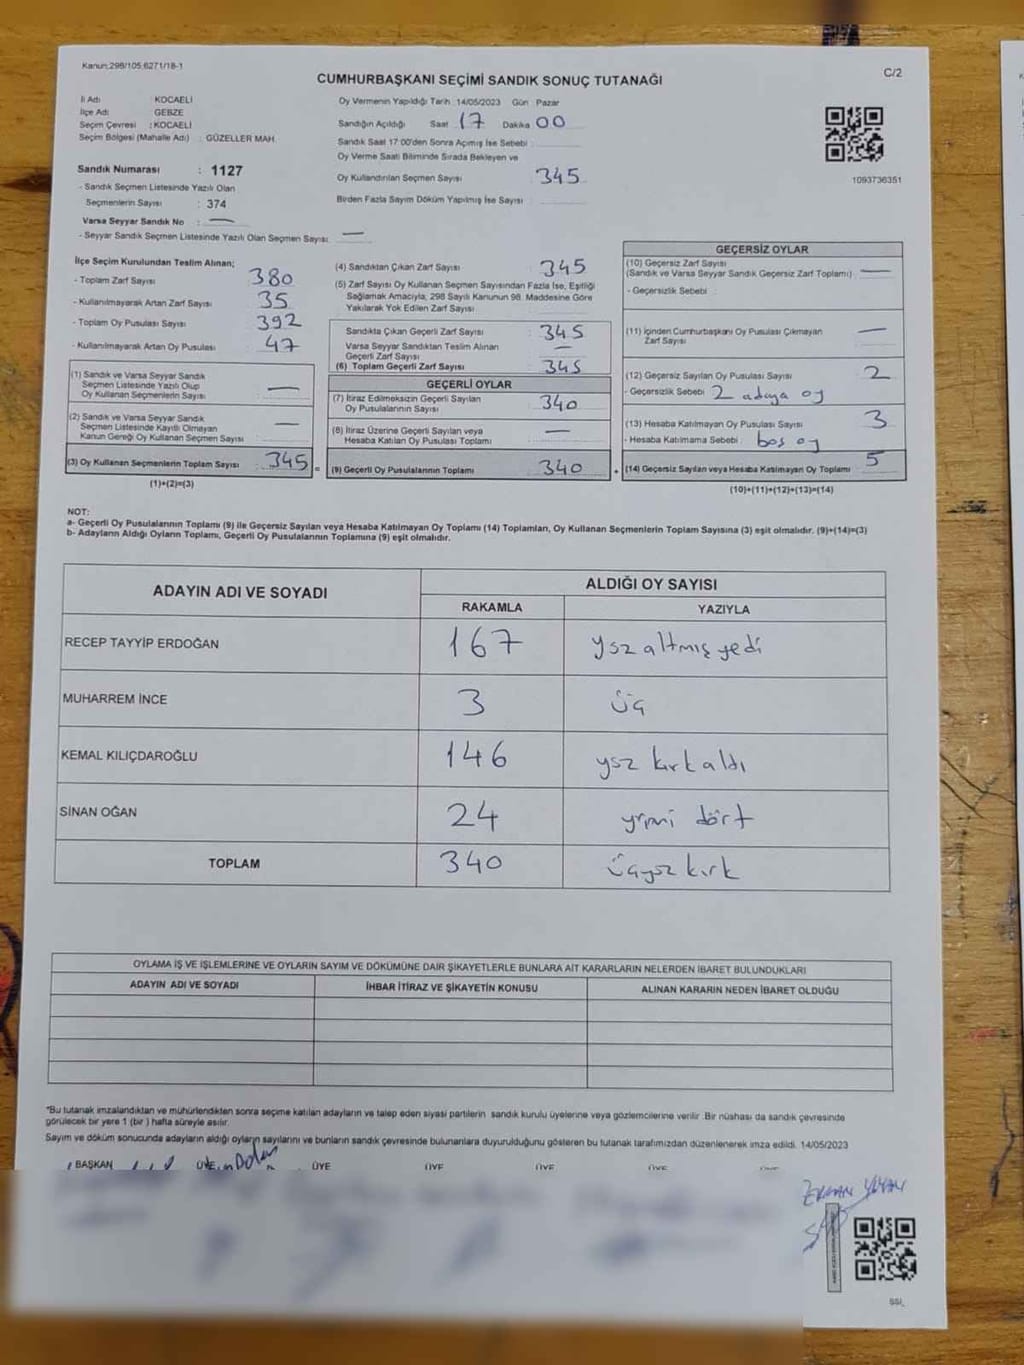 Kanun:298/105,6271/18-1
C/2
CUMHURBAŞKANI SEÇİMİ SANDIK SONUÇ TUTANAĞI
İl Adı : KOCAELİ
İlçe Adı : GEBZE
Seçim Çevresi : KOCAELİ
Seçim Bölgesi (Mahalle Adı) : GÜZELLER MAH.
Sandık Numarası : 1127
- Sandık Seçmen Listesinde Yazılı Olan
Seçmenlerin Sayısı : 374
Varsa Seyyar Sandık No : —
- Seyyar Sandık Seçmen Listesinde Yazılı Olan Seçmen Sayısı: —
Oy Vermenin Yapıldığı Tarih 14/05/2023 Gün Pazar
Sandığın Açıldığı Saat 17 Dakika 00
Sandık Saat 17:00'den Sonra Açımış İse Sebebi :
Oy Verme Saati Bitiminde Sırada Bekleyen ve
Oy Kullandırılan Seçmen Sayısı 345
Birden Fazla Sayım Döküm Yapılmış İse Sayısı :
1093736351
İlçe Seçim Kurulundan Teslim Alınan;
- Toplam Zarf Sayısı 380
- Kullanılmayarak Artan Zarf Sayısı 35
- Toplam Oy Pusulası Sayısı 392
- Kullanılmayarak Artan Oy Pusulası 47
(1) Sandık ve Varsa Seyyar Sandık
Seçmen Listesinde Yazılı Olup
Oy Kullanan Seçmenlerin Sayısı —
(2) Sandık ve Varsa Seyyar Sandık
Seçmen Listesinde Kayıtlı Olmayan
Kanun Gereği Oy Kullanan Seçmen Sayısı —
(3) Oy Kullanan Seçmenlerin Toplam Sayısı 345 =
(1)+(2)=(3)
(4) Sandıktan Çıkan Zarf Sayısı 345
(5) Zarf Sayısı Oy Kullanan Seçmen Sayısından Fazla İse, Eşitliği
Sağlamak Amacıyla, 298 Sayılı Kanunun 98. Maddesine Göre
Yakılarak Yok Edilen Zarf Sayısı
Sandıkta Çıkan Geçerli Zarf Sayısı 345
Varsa Seyyar Sandıktan Teslim Alınan
Geçerli Zarf Sayısı —
(6) Toplam Geçerli Zarf Sayısı 345
GEÇERLİ OYLAR
(7) İtiraz Edilmeksizin Geçerli Sayılan
Oy Pusulalarının Sayısı 340
(8) İtiraz Üzerine Geçerli Sayılan veya
Hesaba Katılan Oy Pusulası Toplamı —
(9) Geçerli Oy Pusulalarının Toplamı 340 +
GEÇERSİZ OYLAR
(10) Geçersiz Zarf Sayısı
(Sandık ve Varsa Seyyar Sandık Geçersiz Zarf Toplamı) —
- Geçersizlik Sebebi :
(11) İçinden Cumhurbaşkanı Oy Pusulası Çıkmayan
Zarf Sayısı —
(12) Geçersiz Sayılan Oy Pusulası Sayısı 2
- Geçersizlik Sebebi : 2 adaya oy
(13) Hesaba Katılmayan Oy Pusulası Sayısı 3
- Hesaba Katılmama Sebebi : boş oy
(14) Geçersiz Sayılan veya Hesaba Katılmayan Oy Toplamı 5
(10)+(11)+(12)+(13)=(14)
NOT:
a- Geçerli Oy Pusulalarının Toplamı (9) ile Geçersiz Sayılan veya Hesaba Katılmayan Oy Toplamı (14) Toplamları, Oy Kullanan Seçmenlerin Toplam Sayısına (3) eşit olmalıdır. (9)+(14)=(3)
b- Adayların Aldığı Oyların Toplamı, Geçerli Oy Pusulalarının Toplamına (9) eşit olmalıdır.
ADAYIN ADI VE SOYADI ALDIĞI OY SAYISI
RAKAMLA YAZIYLA
RECEP TAYYİP ERDOĞAN 167 yüz altmış yedi
MUHARREM İNCE 3 üç
KEMAL KILIÇDAROĞLU 146 yüz kırk altı
SİNAN OĞAN 24 yirmi dört
TOPLAM 340 üçyüz kırk
OYLAMA İŞ VE İŞLEMLERİNE VE OYLARIN SAYIM VE DÖKÜMÜNE DAİR ŞİKAYETLERLE BUNLARA AİT KARARLARIN NELERDEN İBARET BULUNDUKLARI
ADAYIN ADI VE SOYADI İHBAR İTİRAZ VE ŞİKAYETİN KONUSU ALINAN KARARIN NEDEN İBARET OLDUĞU
*Bu tutanak imzalandıktan ve mühürlendikten sonra seçime katılan adayların ve talep eden siyasi partilerin sandık kurulu üyelerine veya gözlemcilerine verilir. Bir nüshası da sandık çevresinde
görülecek bir yere 1 (bir ) hafta süreyle asılır.
Sayım ve döküm sonucunda adayların aldığı oyların sayılarını ve bunların sandık çevresinde bulunanlara duyurulduğunu gösteren bu tutanak tarafımızdan düzenlenerek imza edildi. 14/05/2023
BAŞKAN ÜYE ÜYE ÜYE ÜYE ÜYE ÜYE